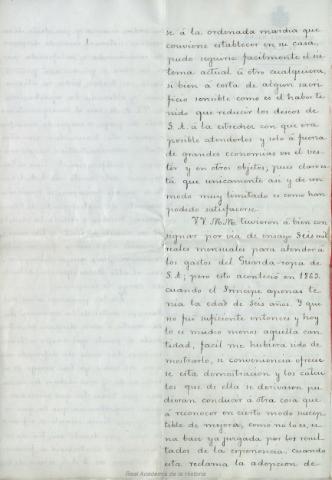 se á la ordenada marcha que
conviene establecer en su casa,
pudo seguirse facilmente el sis
tema actual ú otro cualquiera,
si bien á costa de algun sacri
ficio sensible como es el haber te
nido que reducir los deseos de
S. A. á la estrechez con que era
posible atenderlos y solo á fuerza
de grandes economias en el ves-
tir y en otros objetos; pues claro es
tá que unicamente asi y de un
modo muy limitado es como han
podido satisfacerse.
VV. MM. tuvieron á bien con
signar por via de ensayo Seis mil
reales mensuales para atender á
los gastos del Guarda-ropa de
S. A; pero esto aconteció en 1863.
cuando el Principe apenas te
nia la edad de Seis años. Y que
no fué suficiente entonces y hoy
lo es mucho menos aquella can
tidad, facil me hubiera sido de
mostrarlo, si conveniencia ofrecie
se esta demostracion y los calcu
los que de ella se derivasen pu
dieran conducir a otra cosa que
á reconocer en cierto modo suscep
tible de mejora, como no lo es, u
na base ya juzgada por los resul
tados de la experiencia, cuando
esta reclama la adopcion de
Real Academia de la Historia